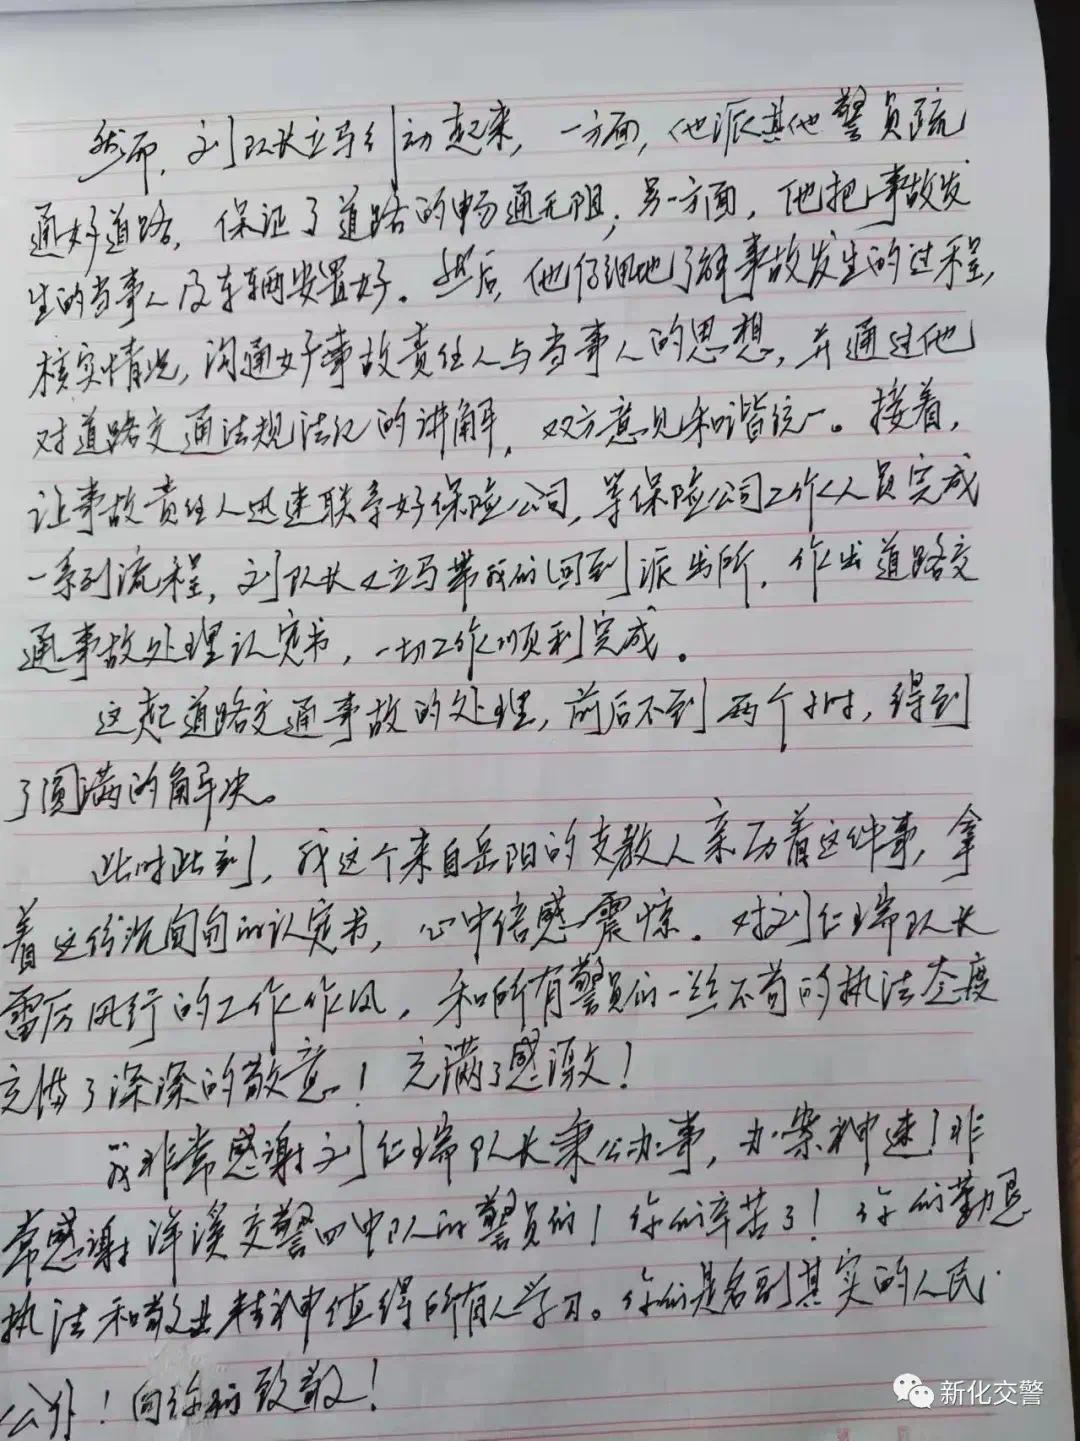 然而，刘队长立马行动起来，一方面，他派其他警员疏
通好道路，保证了道路的畅通无阻；另一方面，他把事故发
生的当事人及车辆安置好。然后，他仔细地了解事故发生的过程，
核实情况，沟通好事故责任人与当事人的思想，并通过他
对道路交通法规法纪的讲解，双方意见和谐统一。接着，
让事故责任人迅速联系好保险公司，等保险公司工作人员完成
一系列流程，刘队长又立马带我们回到派出所，作出道路交
通事故处理认定书，一切工作顺利完成。
这起道路交通事故的处理，前后不到两个小时，得到
了圆满的解决。
此时此刻，我这个来自岳阳的支教人亲历着这件事，拿
着这份沉甸甸的认定书，心中倍感震惊。对刘仁瑞队长
雷厉风行的工作作风，和所有警员们一丝不苟的执法态度
充满了深深的敬意！充满了感激！
我非常感谢刘仁瑞队长秉公办事，办案神速！非
常感谢洋溪交警四中队的警员们！你们辛苦了！你们勤恳
执法和敬业精神值得所有人学习。你们是名副其实的人民
公仆！向你们致敬！
新化交警